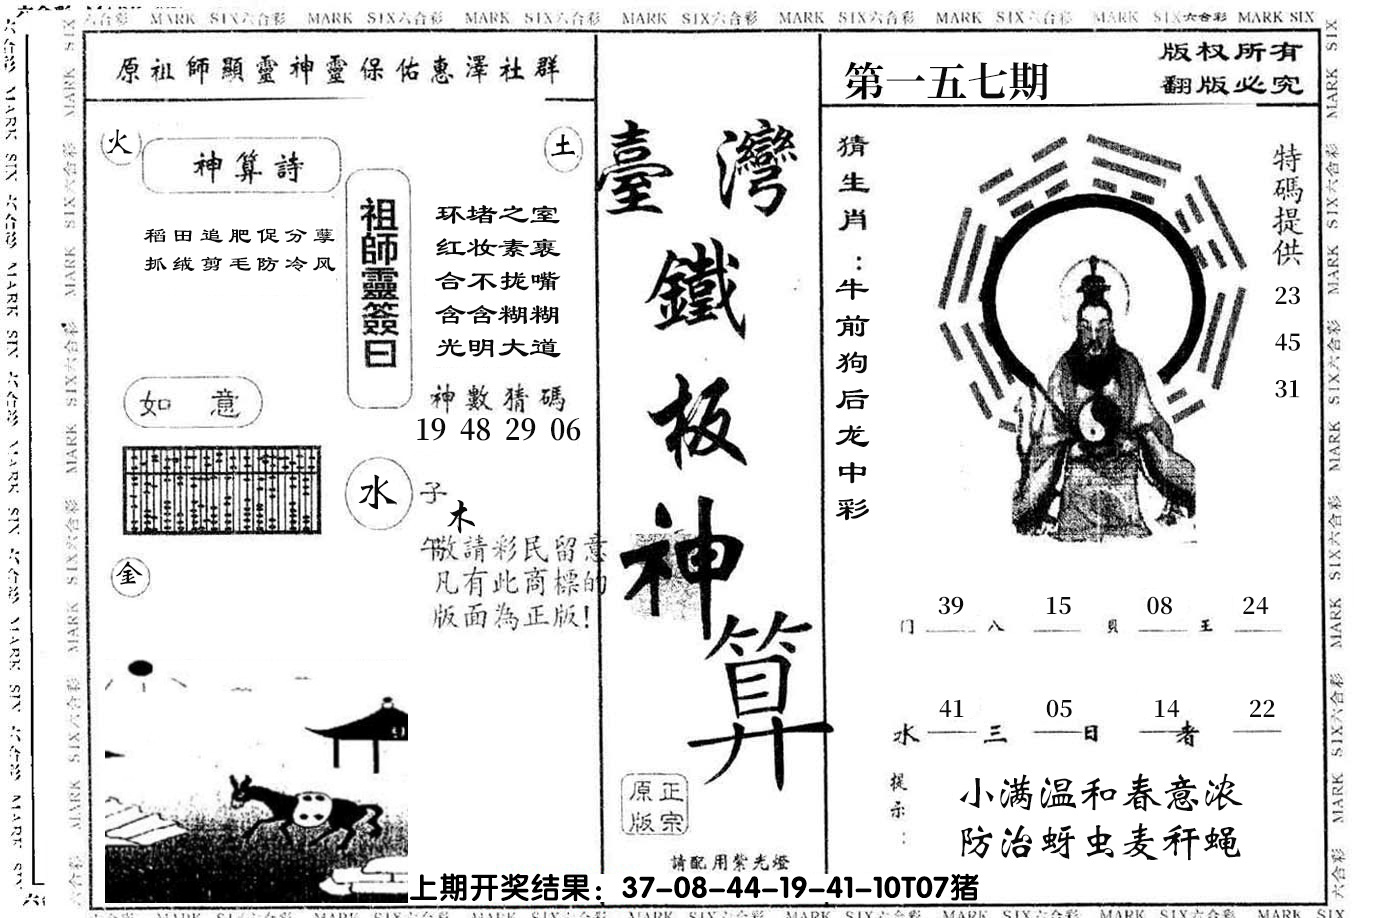 六合彩 MARK SIX六合彩 MARK SIX六合彩 MARK SIX六合彩 MARK SIX六合彩 MARK SIX六合彩 MARK SIX六合彩 MARK SIX六合彩 MARK SIX
原祖師顯靈神靈保佑惠澤社群
火
神算詩
土
稻田追肥促分孽
抓绒剪毛防冷风
祖師靈簽曰
环堵之室
红妆素裹
合不拢嘴
含含糊糊
光明大道
神數猜碼
19 48 29 06
如 意
水
子
木
午
金
敬請彩民留意
凡有此商標的
版面為正版!
臺灣
鐵
板
神
算
正宗
原版
請配用紫光燈
第一五七期
版权所有
翻版必究
猜生肖:牛前狗后龙中彩
特碼提供
23
45
31
39 15 08 24
门 八 貝 王
41 05 14 22
水 三 日 者
提示:
小满温和春意浓
防治蚜虫麦秆蝇
上期开奖结果：37-08-44-19-41-10T07猪